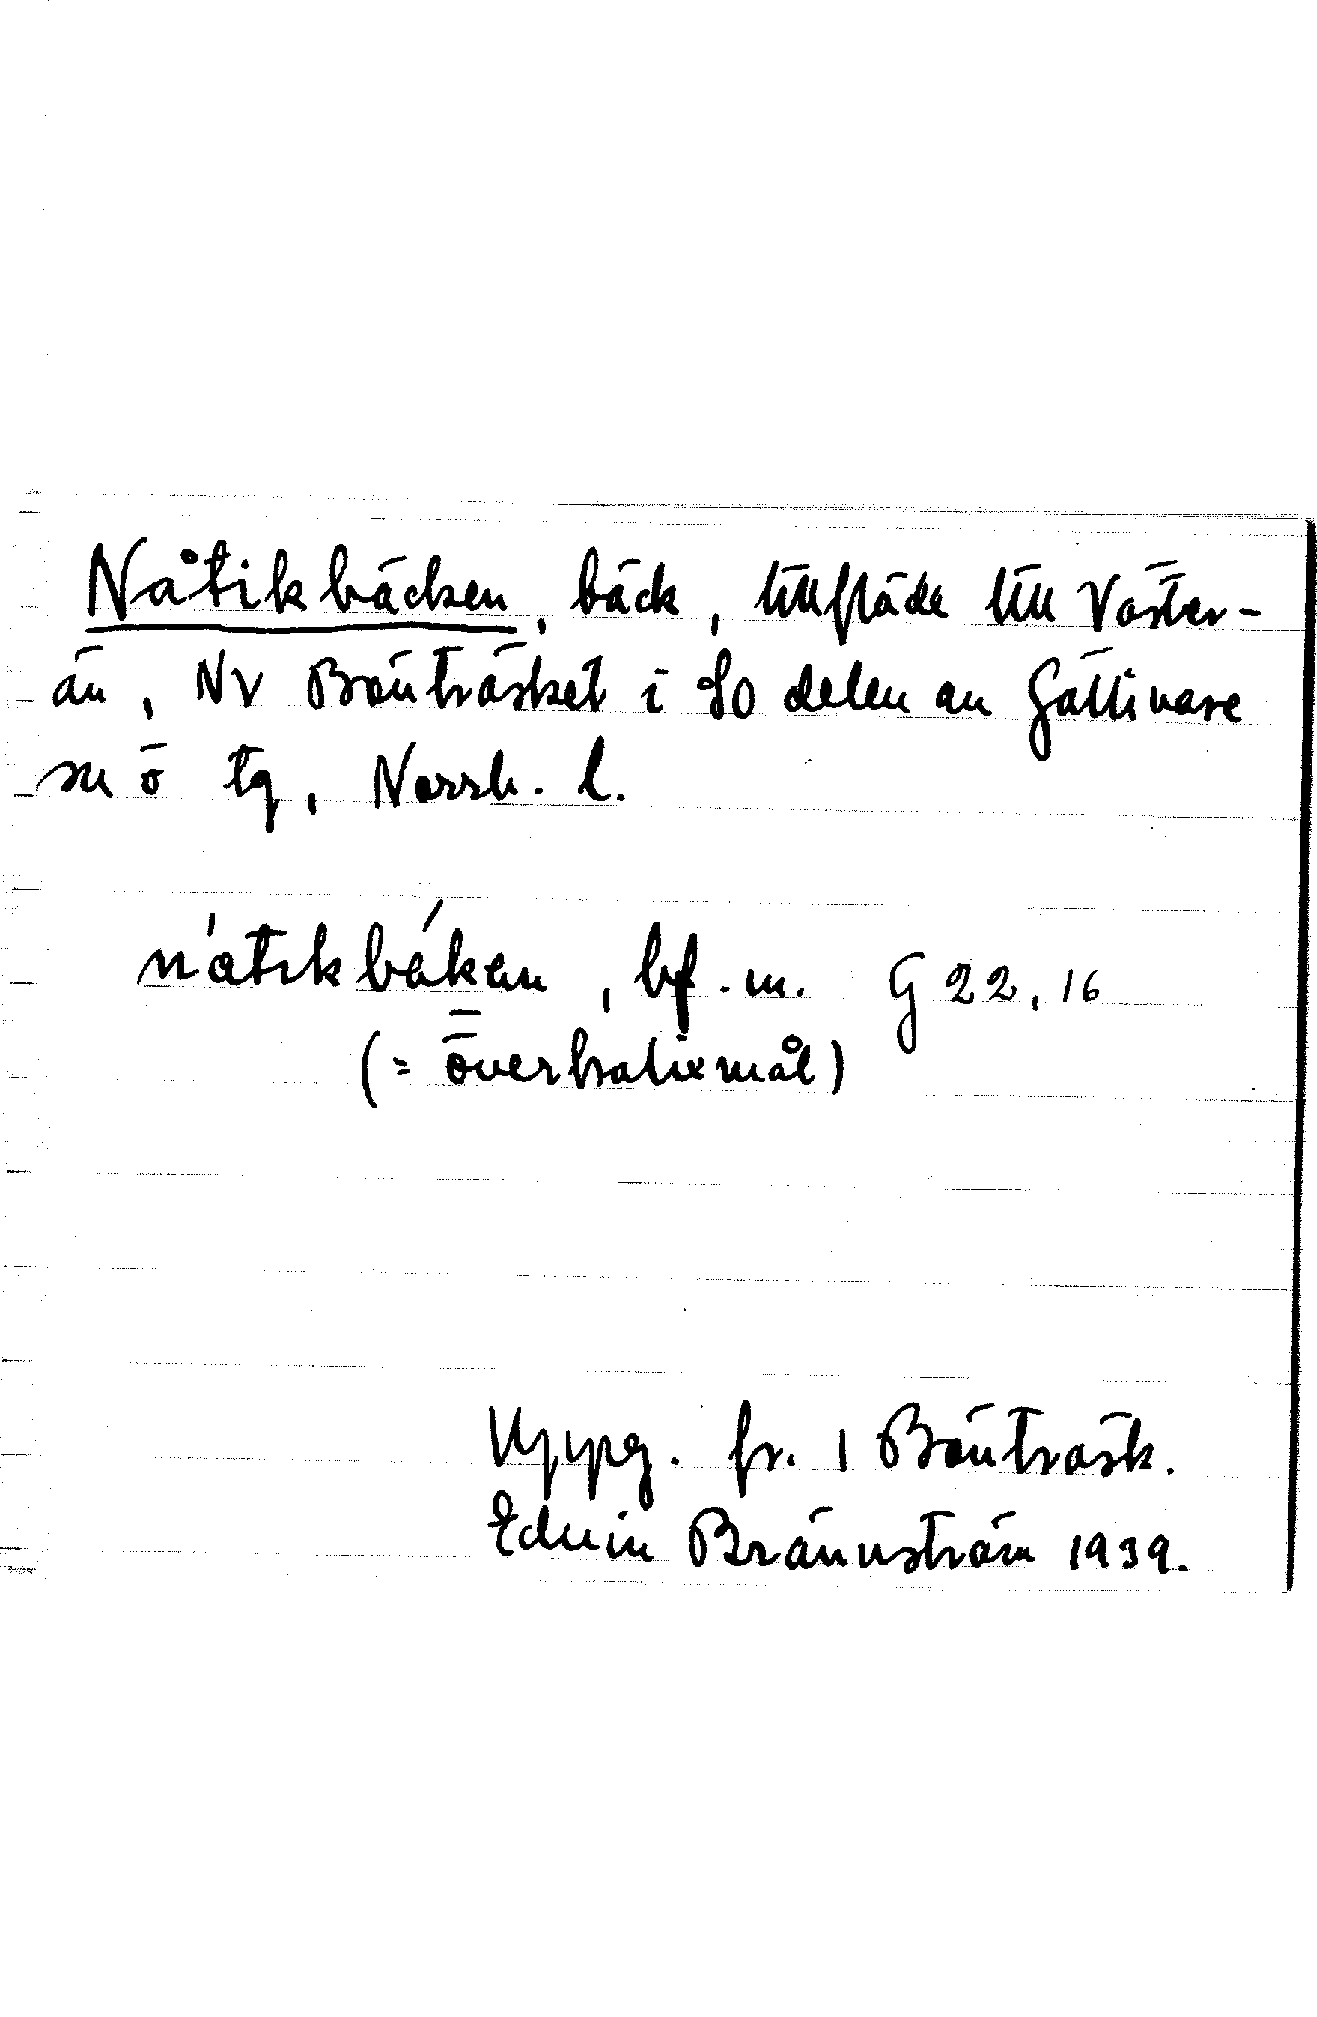 Nåtikbäcken, bäck, tillflöde till Väster-
ån, NV Bönträsket i SO delen av Gällivare
sn ö tg, Norrb. l.
nátikbäken, bf. m. G 22, 16
(= överkalixmål)
Uppg. fr. 1 Bönträsk.
Edvin Brännström 1939.